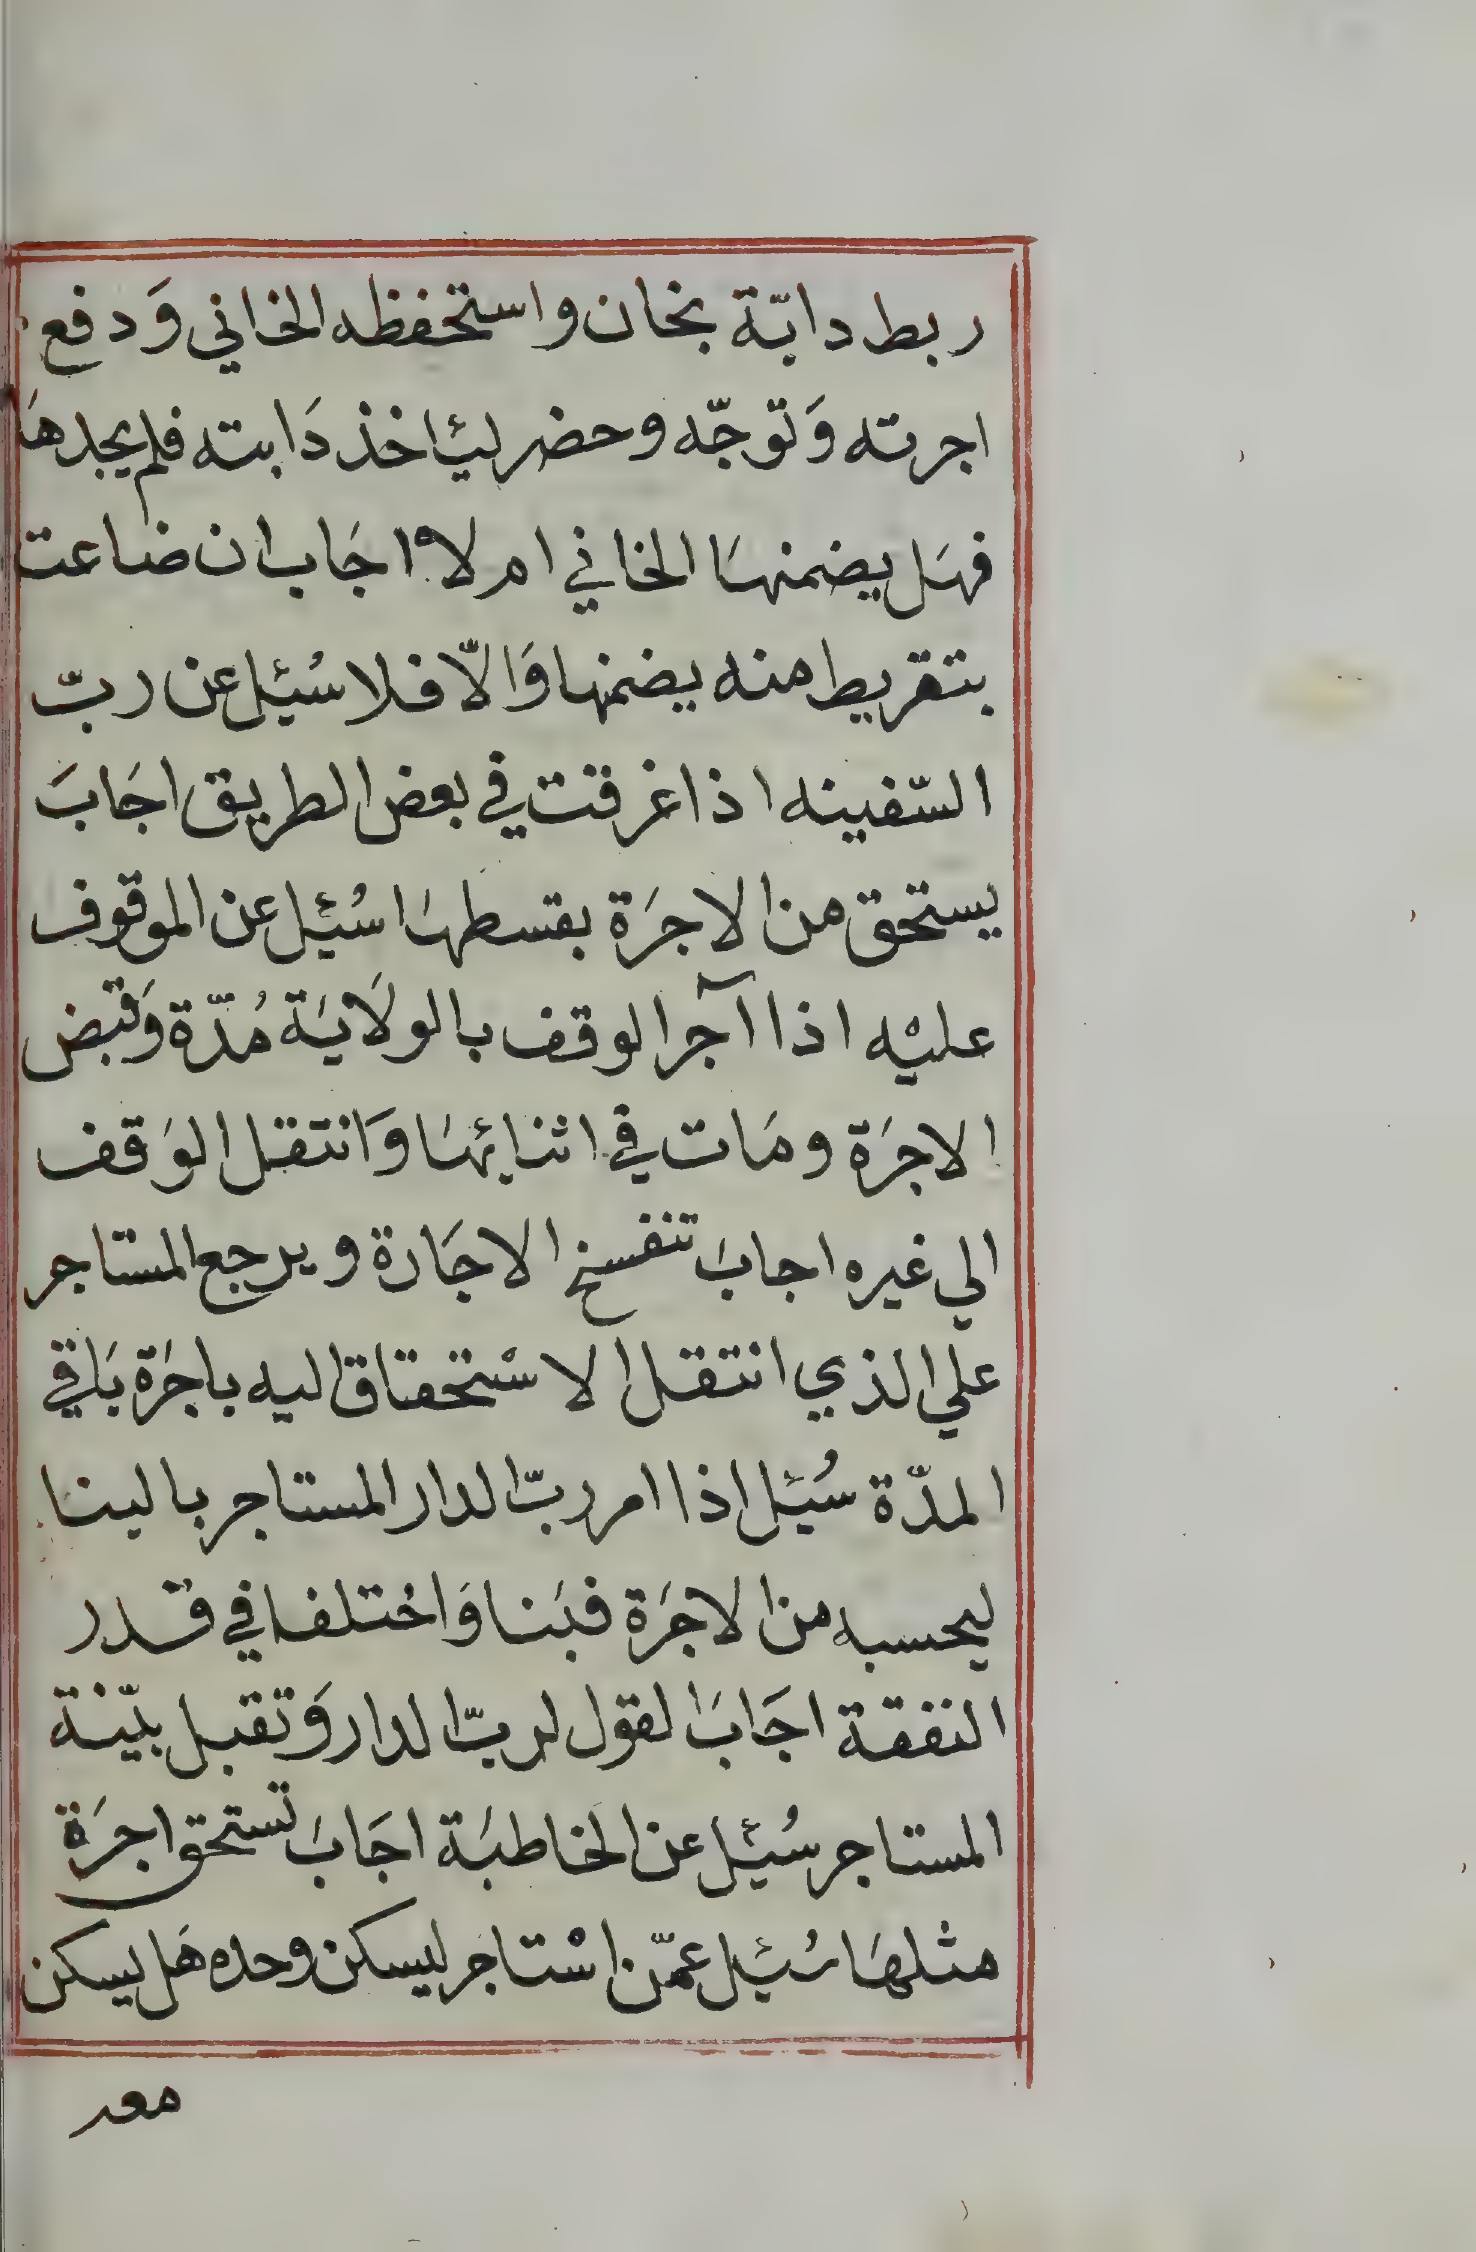 ربط دابّة بخان واستحفظه الخاني وَدفع
اجرته وَتوجّه وحضر لياخذ دَابته فلم يجدهَا
فهَل يضمنهَا الخاني ام لا اجَاب ان ضاعت
بتقريط منه يضمنها وَالّا فلا سُئِل عن ربّ
السّفينه اذا غرقت في بعض الطريق اجَابَ
يستحق من الاجرَة بقسطهَا سُئِل عن الموقوف
عليْه اذا اآجر الوقف بالولَايَة مُدّة وَقبض
الاجرَة ومَات في اثنائهَا وَانتقل الوَقف
الي غيره اجابَ تنفسخ الاجَارة ويرجع المستاجر
علي الذي انتقل الاسْتحقاق اليه باجرَة بَاقي
المدّة سُئِل اذا امر ربّ الدار المستاجر بالبنا
ليحسبه من الاجرَة فبَنا وَاختلفا في قدر
النفقة اجَابَ القول لربّ الدار وَتقبل بيّنة
المستاجر سُئِل عن الخاطبَة اجَابَ تستحق اجرَة
مثلهَا سُئِل عمّن اسْتاجر ليسكن وحده هَل يسكن
معه